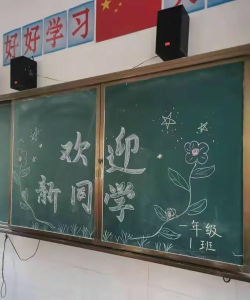 好好学习
欢迎
新同学
一年级
1班